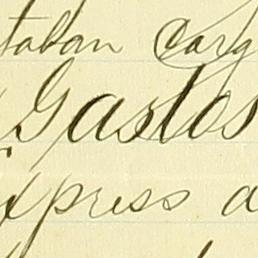 taban carg
Gastos
xpress a